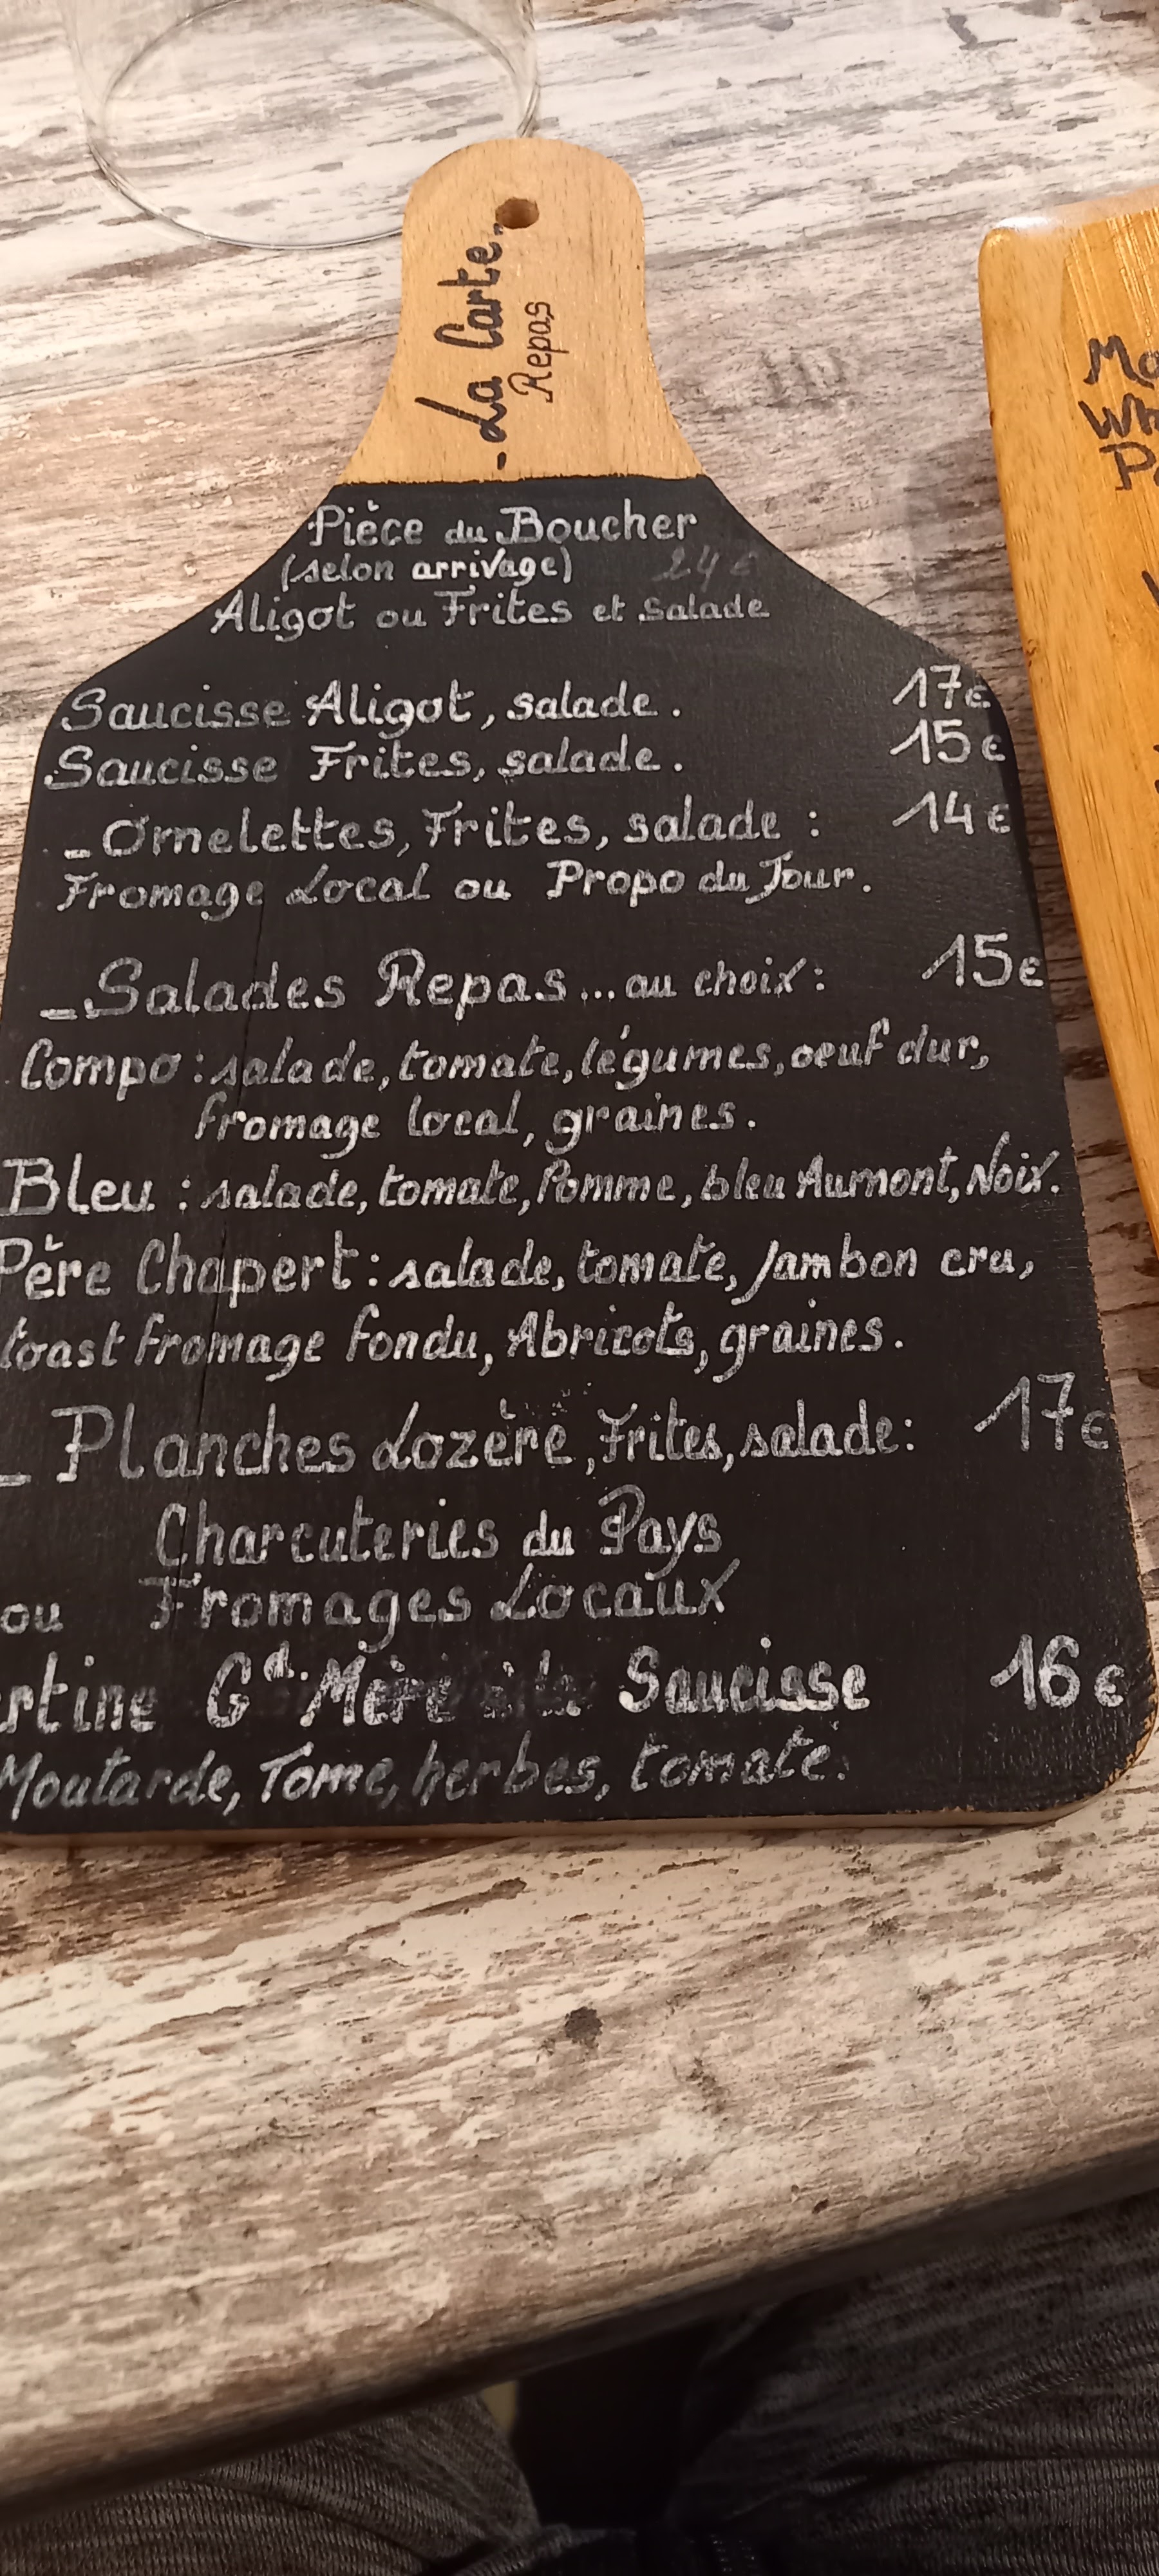 - La Carte -
Repas
Pièce du Boucher
(selon arrivage) 24€
Aligot ou Frites et Salade
Saucisse Aligot, salade. 17€
Saucisse Frites, salade. 15€
- Omelettes, Frites, salade : 14€
Fromage Local ou Propo du Jour.
- Salades Repas... au choix : 15€
Compo : salade, tomate, légumes, oeuf dur,
fromage local, graines.
Bleu : salade, tomate, Pomme, bleu Aumont, Noix.
Père Chapert : salade, tomate, jambon cru,
toast fromage fondu, Abricots, graines.
- Planches Lozère, Frites, salade : 17€
Charcuteries du Pays
ou Fromages Locaux
rtine Gd. Mère à la Saucisse 16€
Moutarde, Tome, herbes, tomate.
Ma
Wh